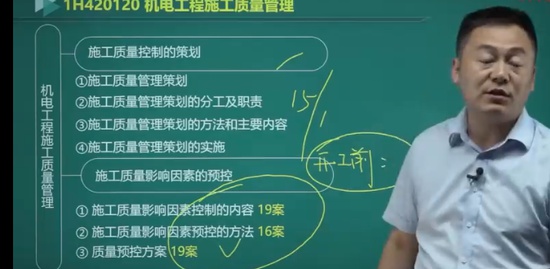 1H420120 机电工程施工质量管理
机电工程施工质量管理
施工质量控制的策划
①施工质量管理策划
②施工质量管理策划的分工及职责
③施工质量管理策划的方法和主要内容
④施工质量管理策划的实施
施工质量影响因素的预控
① 施工质量影响因素控制的内容 19案
② 施工质量影响因素预控的方法 16案
③ 质量预控方案 19案
15/1
开工前: